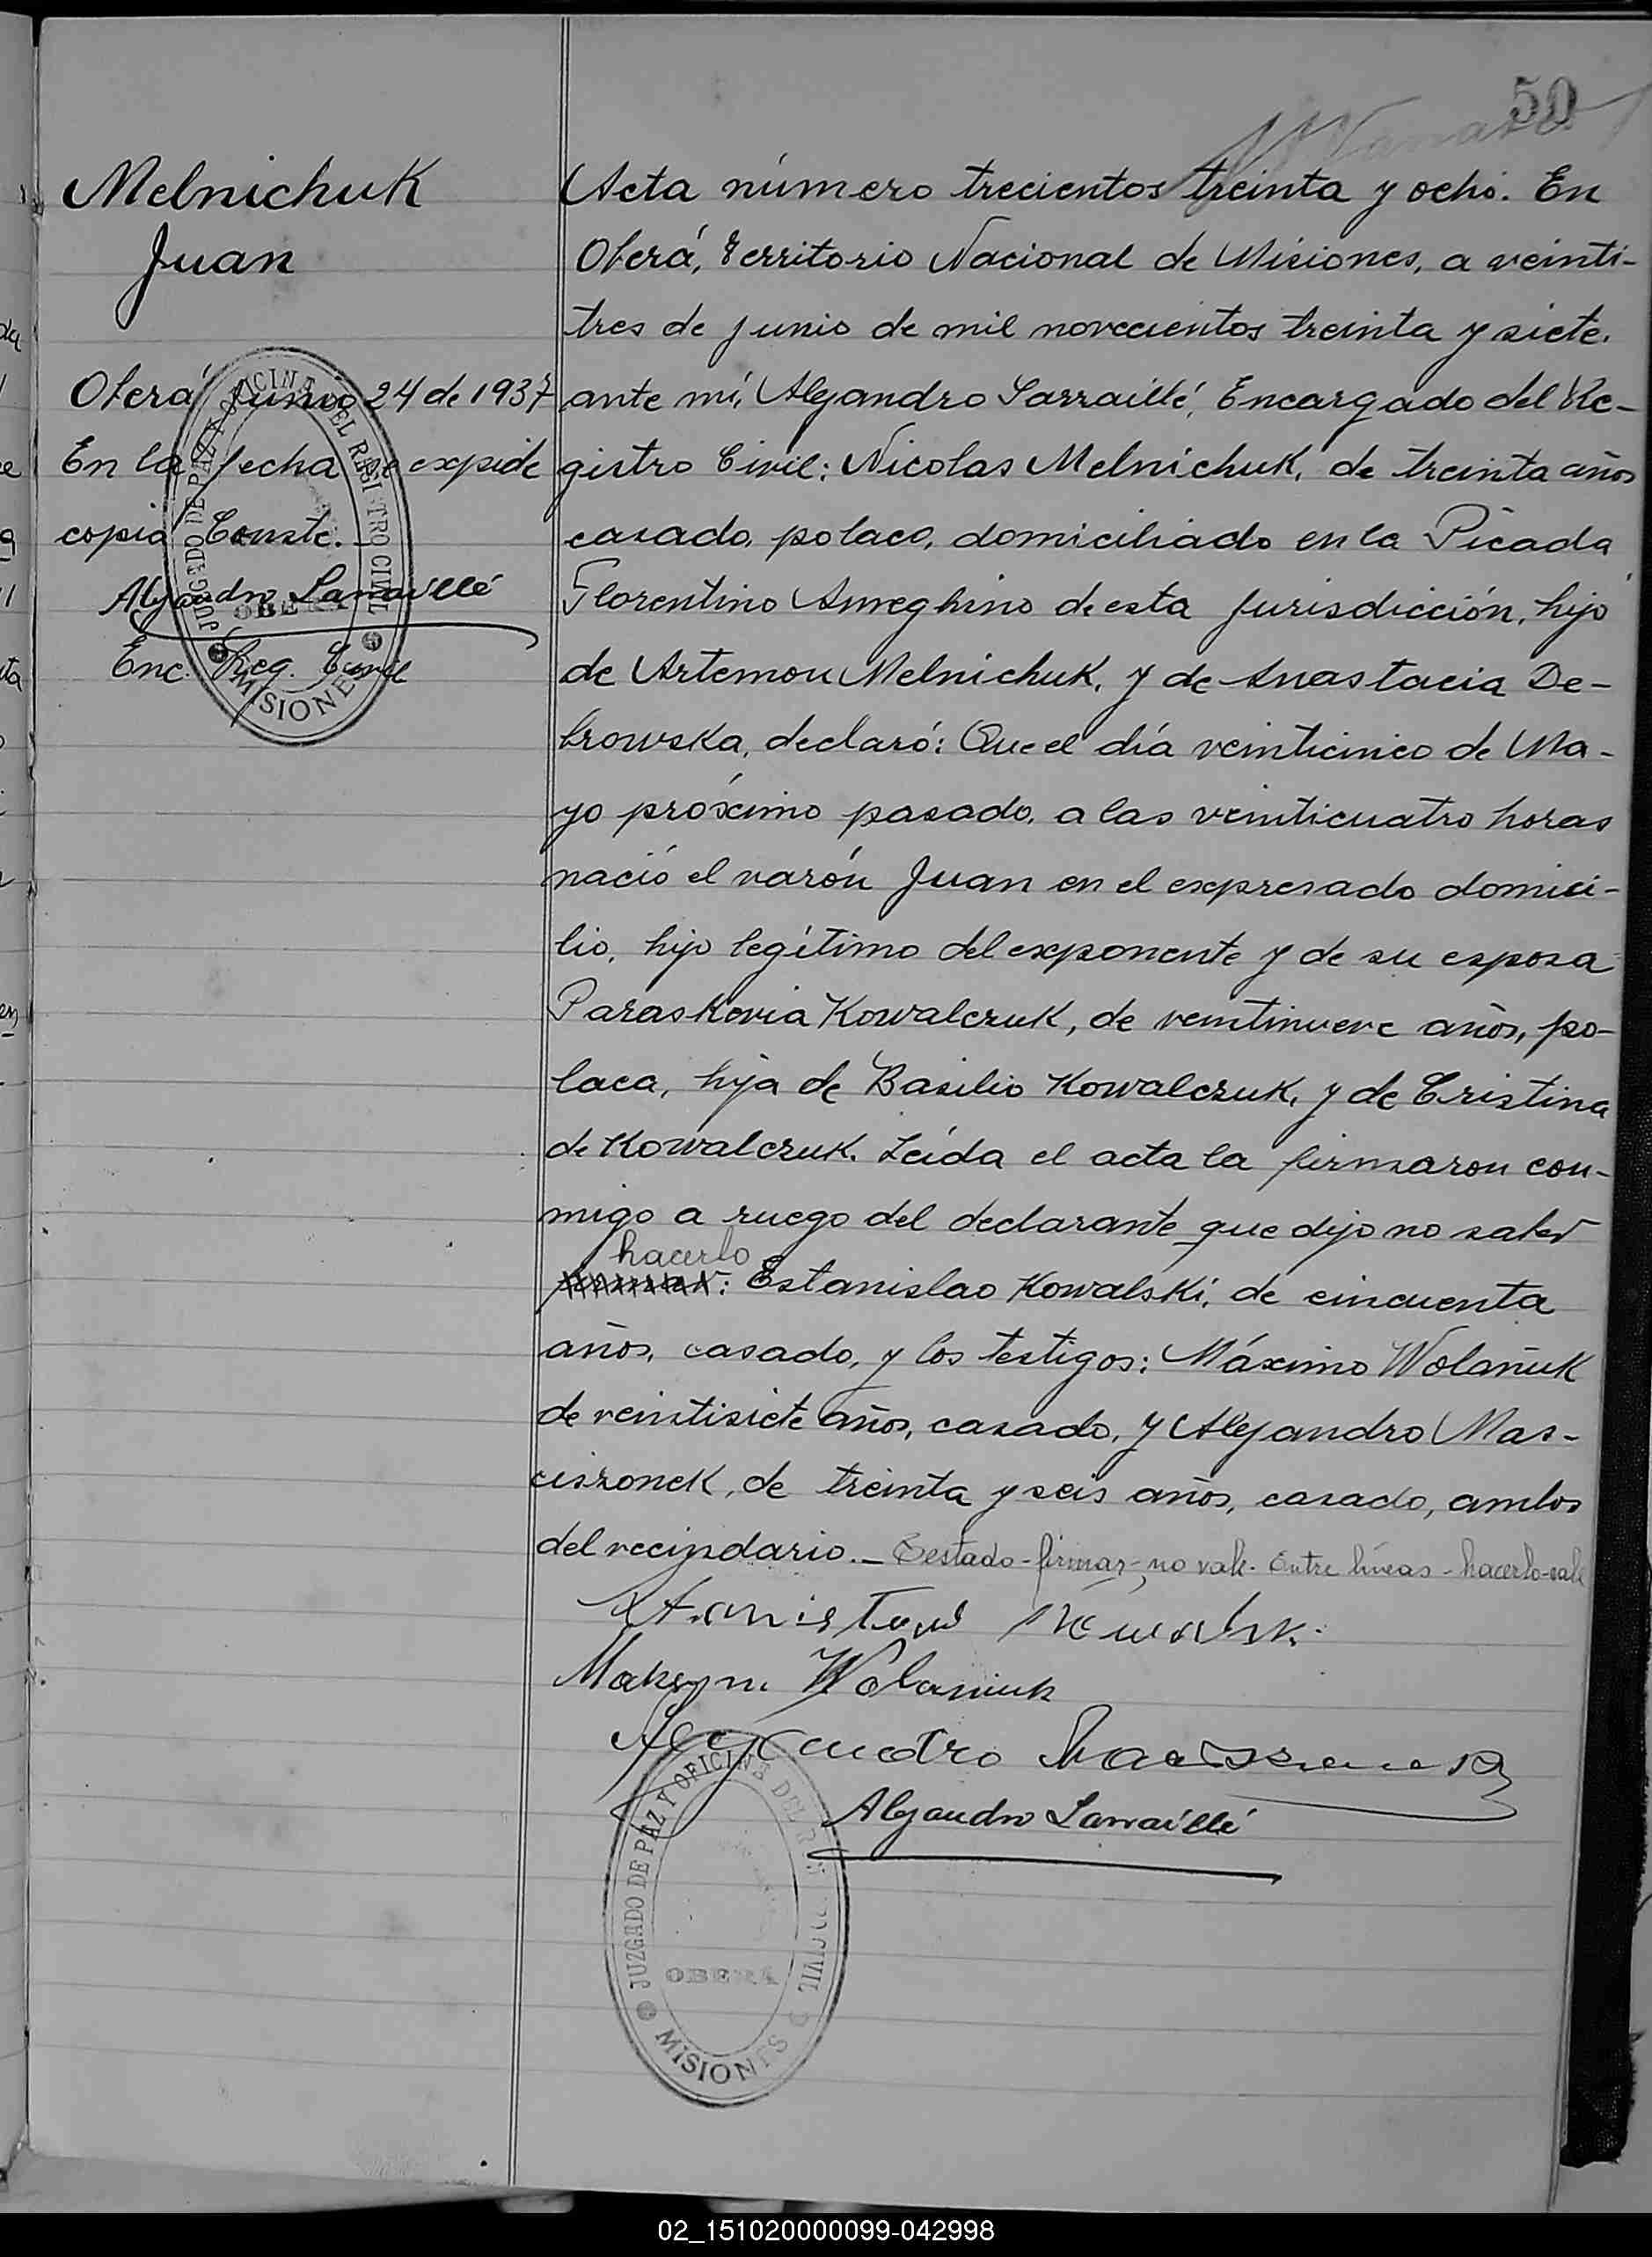 50
Melnichuk
Juan
Oberá, Junio 24 de 1937
En la fecha se expide
copia Conste.
Alejandro Larraillé
Enc. Reg. Civil
JUZGADO DE PAZ Y OFICINA DEL REGISTRO CIVIL
OBERA
MISIONES
Acta número trecientos treinta y ocho. En
Oberá, Territorio Nacional de Misiones, a veinti-
tres de junio de mil novecientos treinta y siete.
ante mí, Alejandro Larraillé, Encargado del Re-
gistro Civil: Nicolas Melnichuk, de treinta años
casado, polaco, domiciliado en la Picada
Florentino Ameghino de esta jurisdicción, hijo
de Artemon Melnichuk, y de Anastacia De-
browska, declaró: Que el día veinticinco de Ma-
yo próximo pasado, a las veinticuatro horas
nació el varón Juan en el expresado domici-
lio, hijo legítimo del exponente y de su esposa
Paraskovia Kowalczuk, de veintinueve años, po-
laca, hija de Basilio Kowalczuk, y de Cristina
de Kowalczuk. Leída el acta la firmaron con-
migo a ruego del declarante que dijo no saber
hacerlo
firmar: Estanislao Kowalski, de cincuenta
años, casado, y los testigos: Máximo Wolañuk
de veintisiete años, casado, y Alejandro Mas-
ciszonek, de treinta y seis años, casado, ambos
del vecindario. — Testado - firmar - no vale. Entre líneas - hacerlo - vale
Maksym Wolaniuk
Alejandro
Alejandro Larraillé
JUZGADO DE PAZ Y OFICINA DEL REG CIVIL
OBERA
MISIONES
02_151020000099-042998